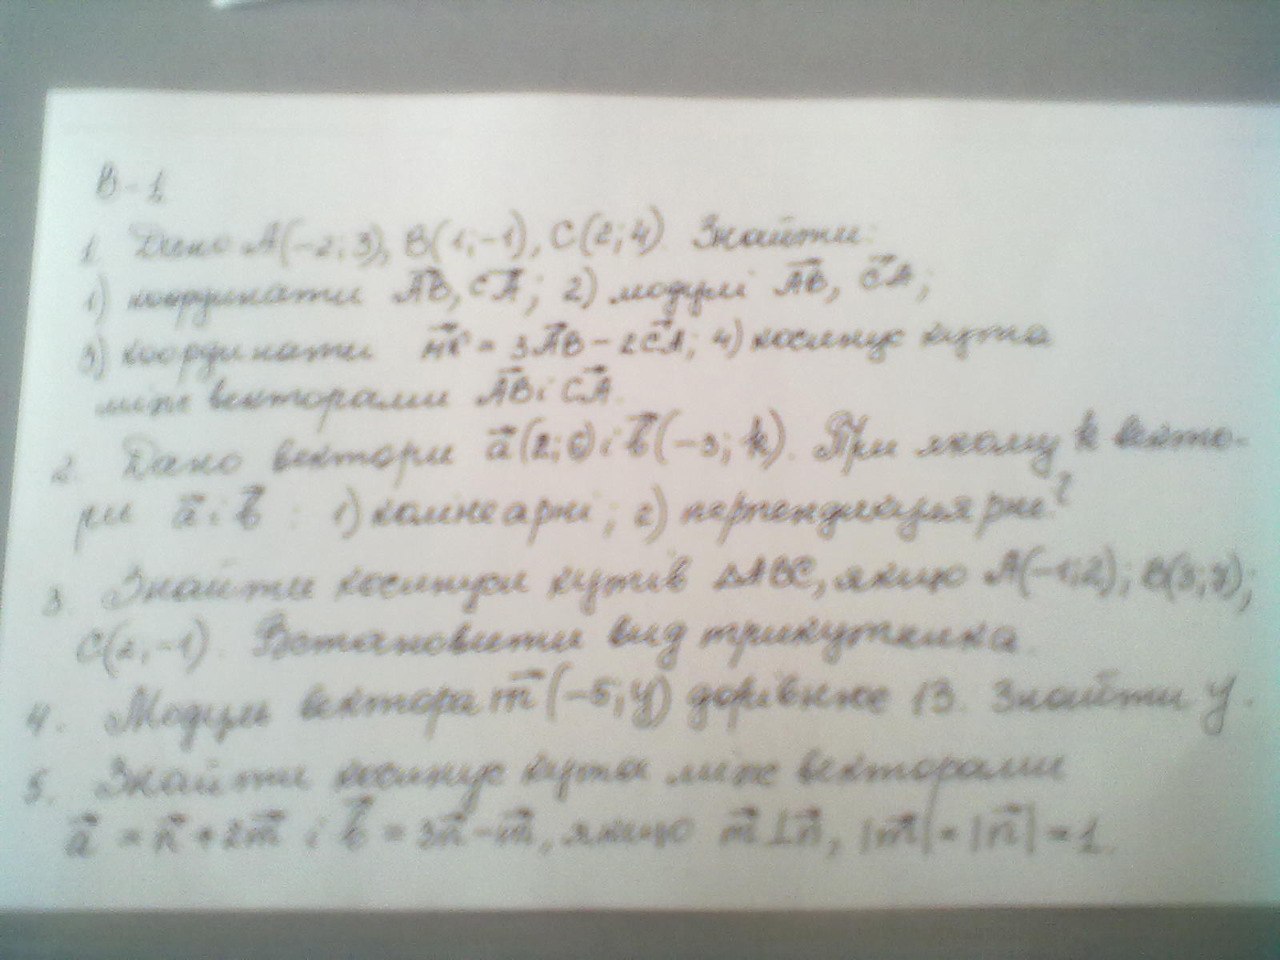 В-1
1. Дано A(-2; 3), B(1; -1), C(2; 4). Знайти:
1) координати AB, CA; 2) модулі AB, CA;
3) координати = 3AB - 2CA; 4) косинус кута
між векторами AB і CA.
2. Дано вектори a(2; 6) і b(-3; k). При якому k векто-
ри a і b : 1) колінеарні; 2) перпендикулярні?
3. Знайти косинуси кутів ΔABC, якщо A(-1; 2);
C(2; -1). Встановити вид трикутника.
4. Модуль вектора m(-5; y) дорівнює 13. Знайти y.
5. Знайти косинус кута між векторами
a = n + 2m і b = 3n - m, якщо m⊥n, |m| = |n| = 1.